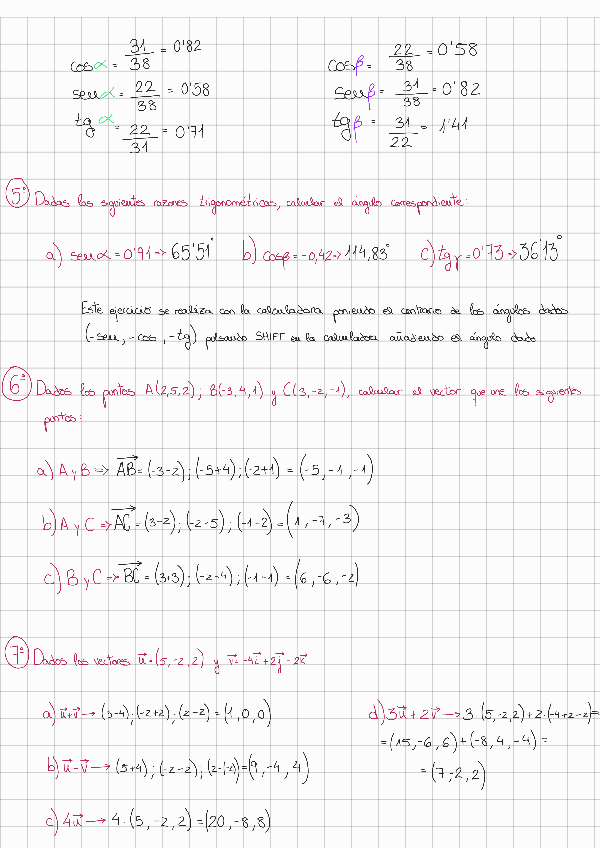 cos α = 31/38 = 0'82 cos β = 22/38 = 0'58
sen α = 22/38 = 0'58 sen β = 31/38 = 0'82
tg α = 22/31 = 0'71 tg β = 31/22 = 1'41
5º Dadas las siguientes razones trigonométricas, calcular el ángulo correspondiente:
a) sen α = 0'91 → 65'51° b) cos β = -0,42 → 114,83° c) tg γ = 0'73 → 36'13°
Este ejercicio se realiza con la calculadora poniendo el contrario de los ángulos dados
(-sen, -cos, -tg) pulsando SHIFT en la calculadora añadiendo el ángulo dado
6º Dados los puntos A(2,5,2); B(-3,4,1) y C(3,-2,-1), calcular el vector que une los siguientes
puntos:
a) A y B => AB = (-3-2); (-5+4); (-2+1) = (-5, -1, -1)
b) A y C => AC = (3-2); (-2-5); (-1-2) = (1, -7, -3)
c) B y C => BC = (3+3); (-2-4); (-1-1) = (6, -6, -2)
7º Dados los vectores u = (5, -2, 2) y v = -4i + 2j - 2k
a) u+v → (3-4); (-2+2); (2-2) = (1, 0, 0)
b) u-v → (5+4); (-2-2); (2-(-2)) = (9, -4, 4)
c) 4u → 4·(5, -2, 2) = (20, -8, 8)
d) 3u + 2v → 3·(5, -2, 2) + 2·(-4+2-2) =
= (15, -6, 6) + (-8, 4, -4) =
= (7, -2, 2)